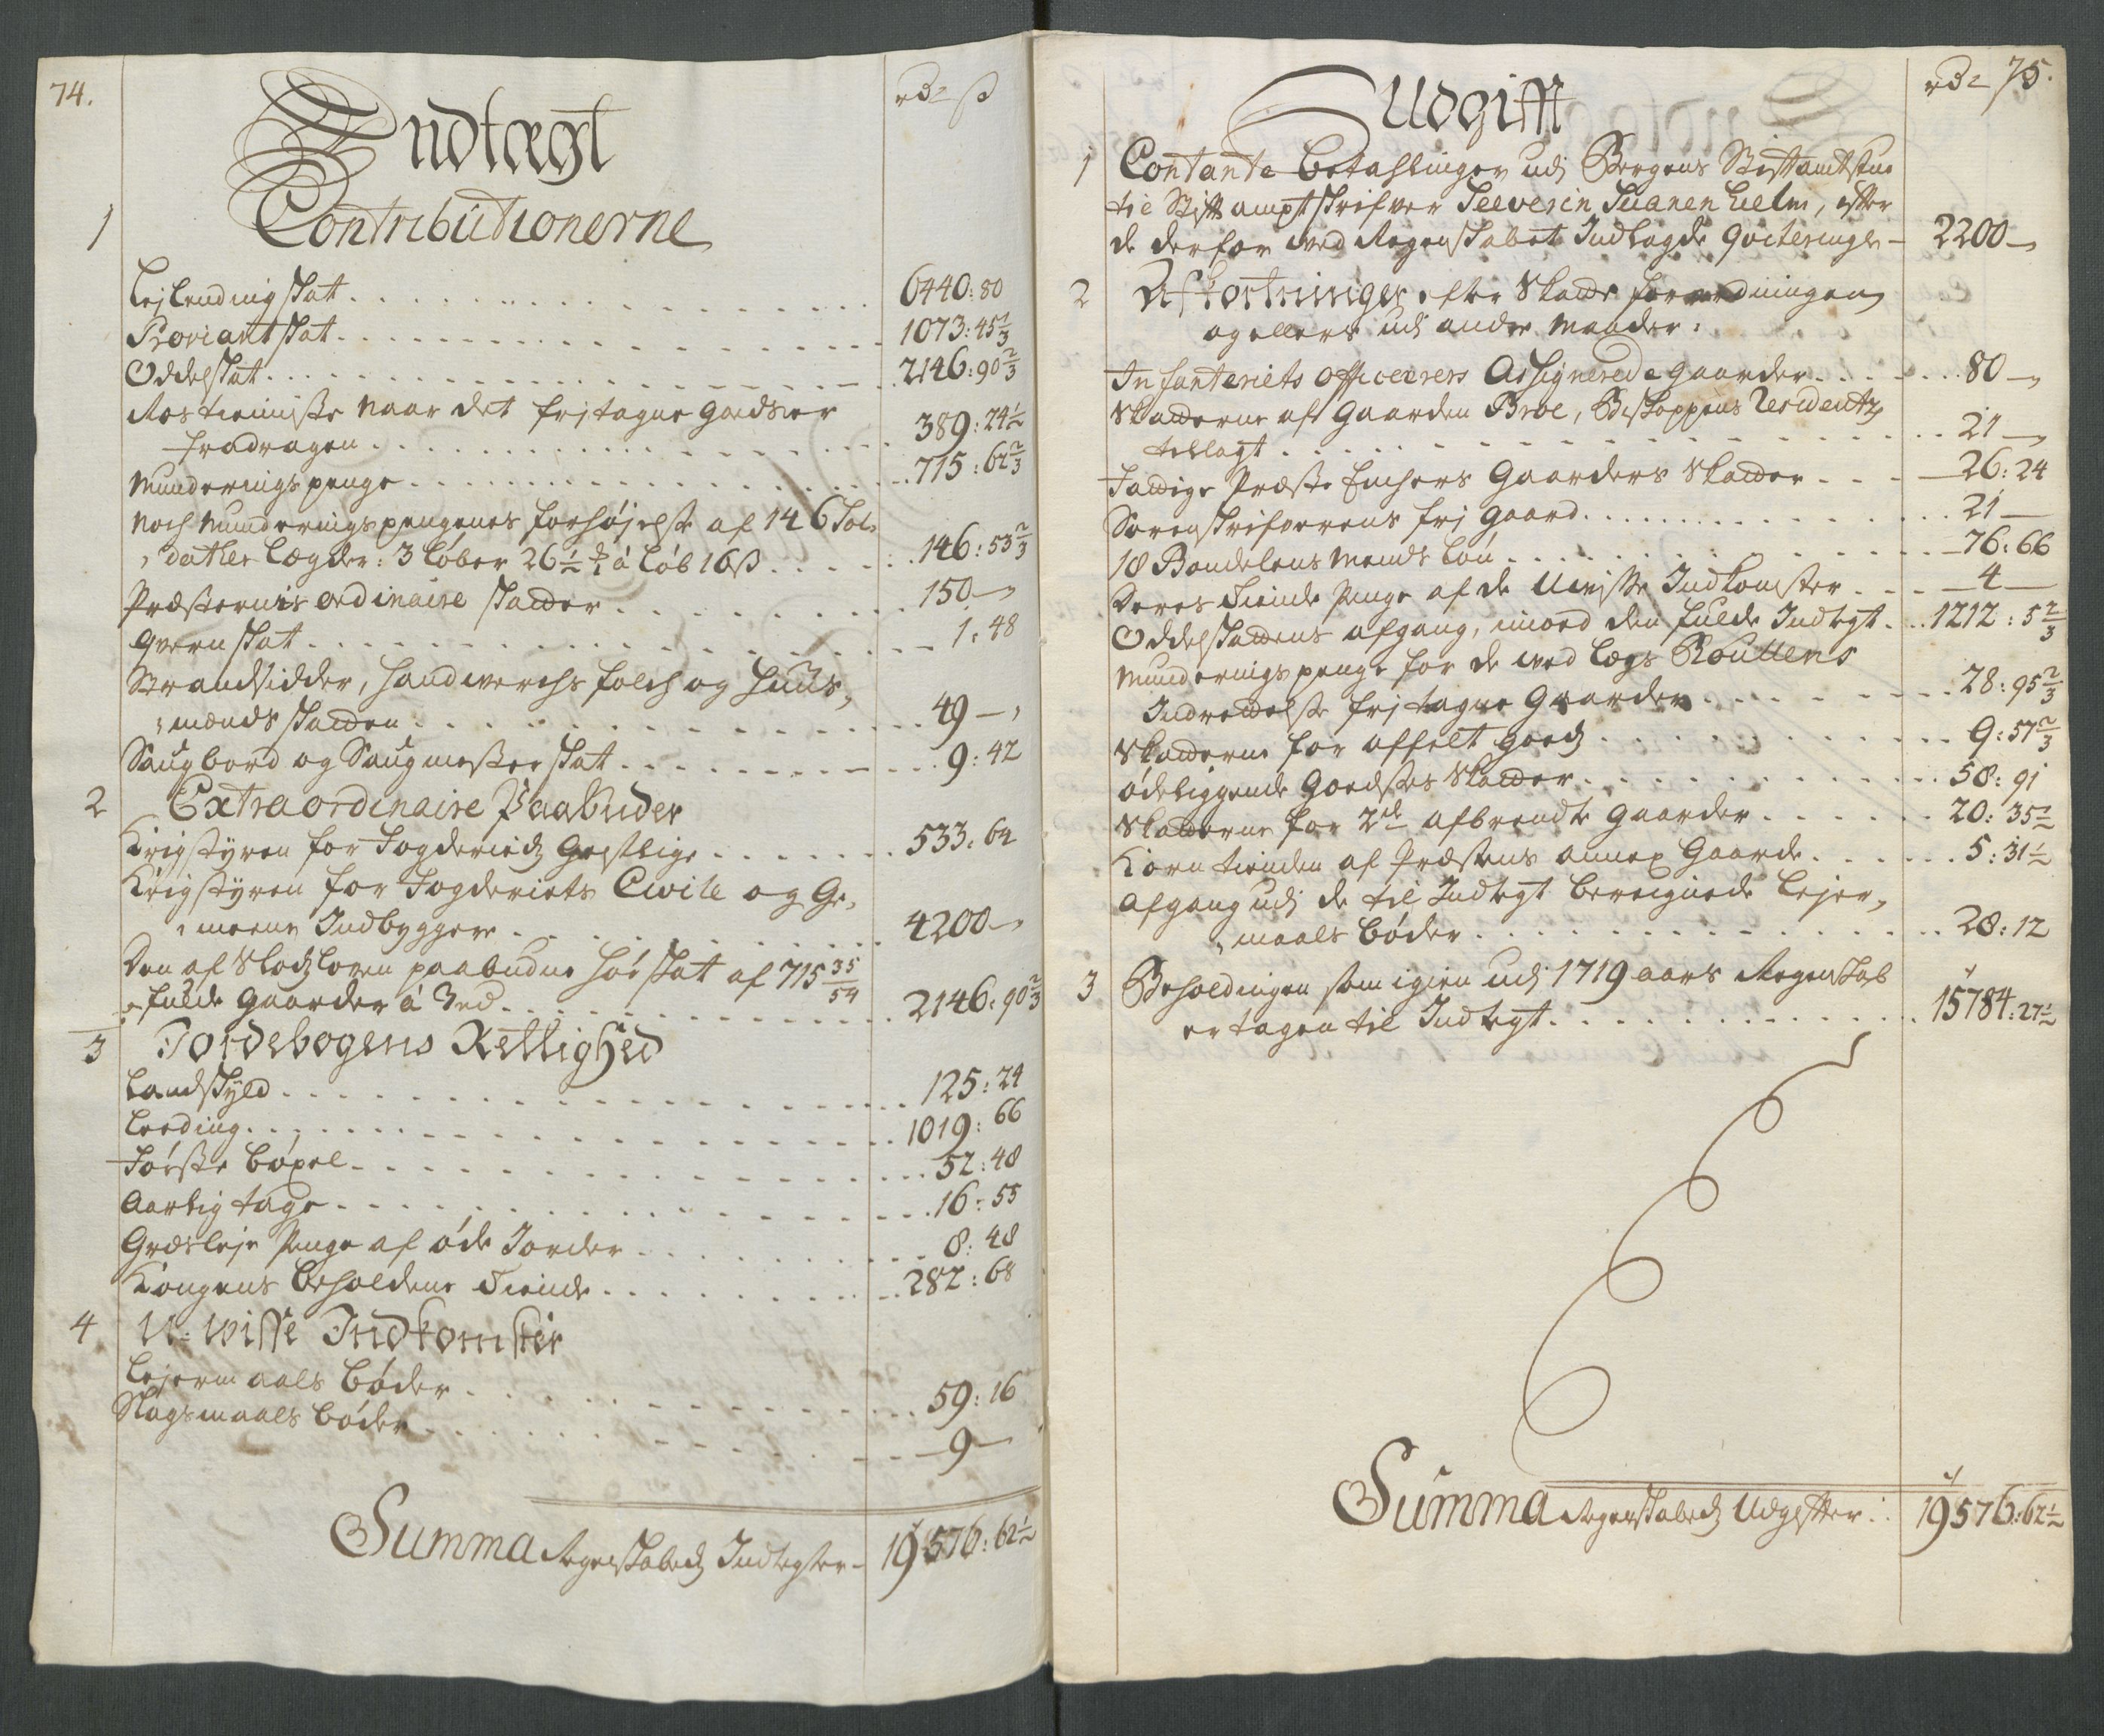 74.
rdr ß
Indtægt
1
Contributionerne
Lejlendingskat 6440:80
Proviantskat 1073:45 1/3
Oddelskat 2146:90 2/3
Rostieniste naar det fritagne Goedser
fradragen 389:24 1/2
Munderingspenge 715:62 2/3
Noch Munderingspengenes forhøjelse af 146 Sol-
dather Legder: 3 Løber 26 1/2 à Løb 16 ß 146:53 2/3
Præsternis ordinaire skatter 150 -
Qvernskat 1:48
Strandsidder, handwerchs folch og huus-
mænds skatten 49 -
Saugbord og Saugmester skat 9:42
2 Extraordinaire Paabuder
Krigstyren for Fogderiedz Gejstlige 533:64
Krigstyren for Fogderiets Civile og Ge-
meene Indbyggere 4200 -
Den af Slodzloven paabudne Hørskat af 715 35/54
fulde Gaarder à 3 rd 2146:90 2/3
3 Jordebogens Rettighed
Landskyld 125:24
Leeding 1019:66
Første Bøxel 52:48
Aarlig tage 16:55
Græsleje Penge af øde Jorder 8:48
Kongens beholdene Tiende 282:68
4 U-Wisse Indkomster
Lejermaals bøder 59:16
Slagsmaals bøder 9 -
Summa Regenskabedz Indtegter 19576:62 1/2
75.
rdr
Udgifft
1 Contante betahlinger udj Bergens Stiftamtstue
til Stiftamptskrifver Seeverin Suanenhielm, efter
de derfor wed Regenskabet Indlagde qviteringer 2200 -
2 Afkortninger efter Skatte forordningen
og ellers udi andre Maader:
Infanteriets officerers Assignerede gaarder 80 -
Skatterne af Gaarden Broe, Biskoppens Residentz
tillagt 21 -
Fattige Præste Enchers Gaarders Skatter 26:24
Sorenskrifverens frj gaard 21 -
18 Bondelens Mends Løn 76:66
Deres Tiende Penge af de Uwisse Indkomster 4 -
Oddelskattens afgang, imod den fulde Indtegt 1212:5 2/3
Munderingspenge for de wed Legs Roullens
Indrettelse fritagne Gaarder 28:95 2/3
Skatterne for affelt goedz 9:57 2/3
Ødeliggende Goedsets Skatter 58:91
Skatterne for 2de afbrendte Gaarder 20:35 1/2
Korn tienden af Præstens annex Gaarde 5:31 1/2
Afgang udj de til Indtegt beregnede Lejer-
maals bøder 28:12
3 Beholdingen som igien udj 1719 aars Regenskab
er tagen til Indtegt 15784:27 1/2
Summa Regenskabedz Udgifter 19576:62 1/2